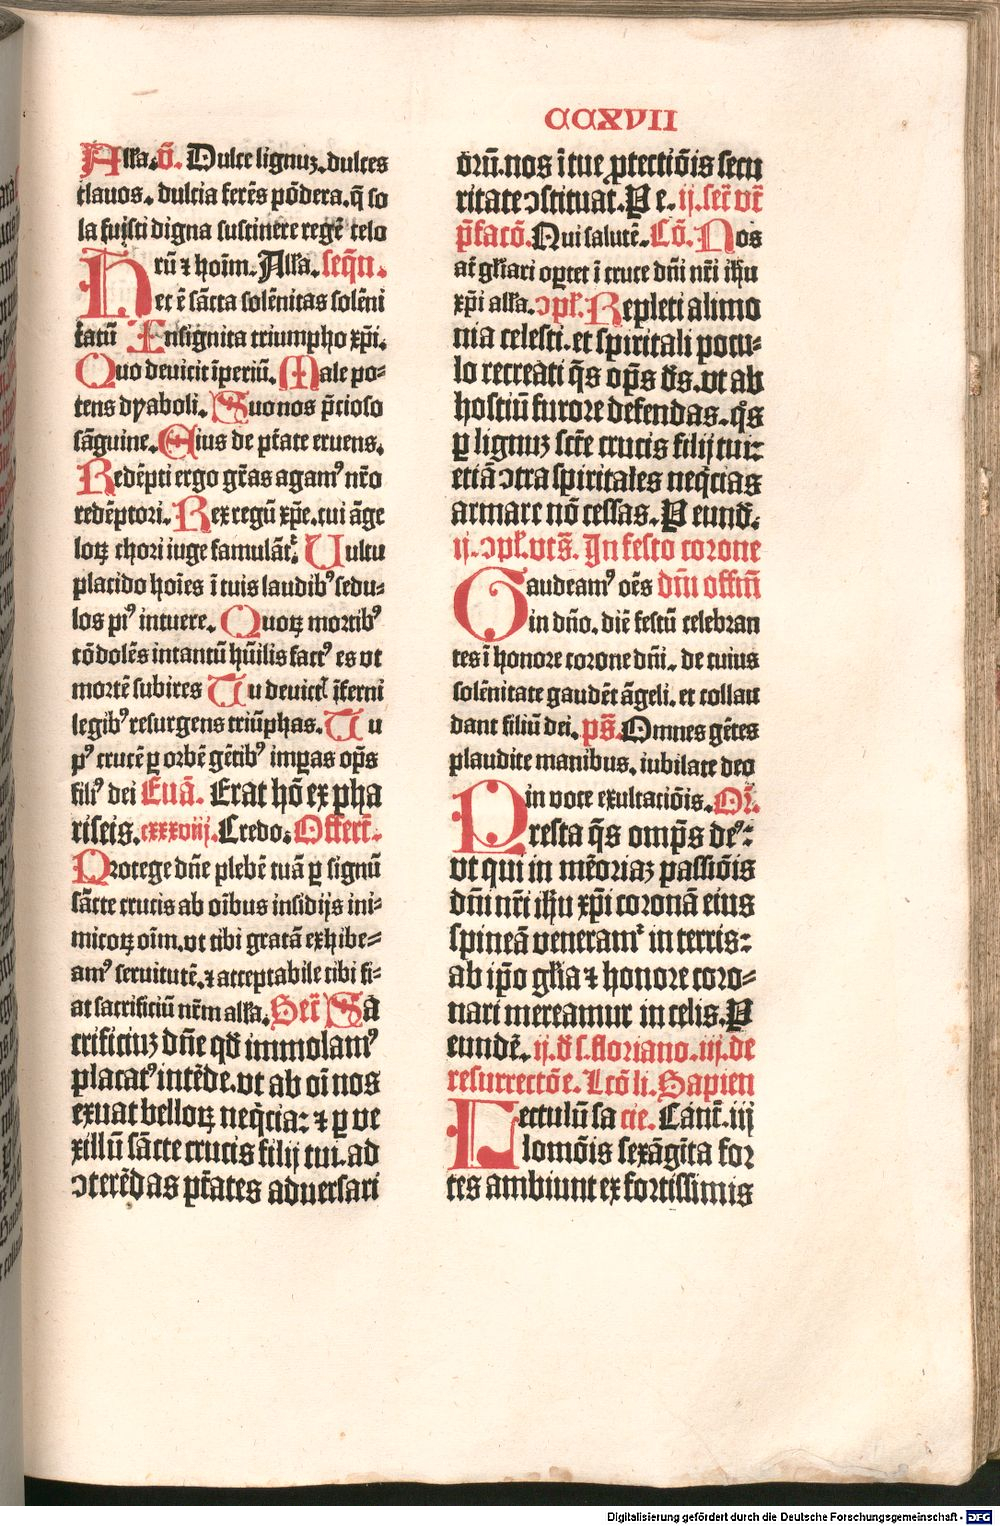 CCXVII
Alla. v̄. Dulce lignuꝫ. dulces
clauos. dulcia ferēs pōdera. q̄ so
la fuisti digna sustinere regē celo
rū ⁊ hoīm. Alla. seq̄n.
Hec ē sācta solēnitas solēni
tatū Insignita triumpho xp̄i.
Quo deuicit īperiū. Male po-
tens dyaboli. Suo nos p̄cioso
sāguine. Eius de ptāte eruens.
Redēpti ergo grās agamꝰ nr̄o
redēptori. Rex regū xp̄e. cui āge
loꝝ chori iuge famulāt᷑. Uultu
placido hoīes ī tuis laudibꝰ sedu-
los piꝰ intuere. Quoꝝ mortibꝰ
cōdolēs intantū hūilis factꝰ es vt
mortē subires Tu deuictꝭ īferni
legibꝰ resurgens triūphas. Tu
pꝰ crucē ꝑ orbē gētibꝰ impas op̄s
filiꝰ dei Euā. Erat hō ex pha
riseis. cxxxviij. Credo. Offert̄.
Protege dn̄e plebē tuā ꝑ signū
sācte crucis ab oībus insidijs ini-
micoꝝ oīm. vt tibi gratā exhibe-
amꝰ seruitutē. ⁊ acceptabile tibi fi-
at sacrificiū nr̄m alla. Secr̄ Sa
crificiuꝫ dn̄e qd̄ immolamꝰ
placatꝰ intēde. vt ab oī nos
exuat belloꝝ neq̄cia: ⁊ ꝑ ve
xillū sācte crucis filij tui. ad
ↄterēdas ptātes aduersari
orū. nos ī tue ꝓtectiōis secu
ritate ↄstituat. P e. ij. secr̄ vt̄
p̄facō. Qui salutē. Cō. Nos
at̄ gl̄iari oꝑtet ī cruce dn̄i nr̄i ih̄u
xp̄i alla. ↄpl̄. Repleti alimo
nia celesti. et spiritali pocu-
lo recreati q̄s op̄s d̄s. vt ab
hostiū furore defendas. q̊s
ꝑ lignuꝫ sct̄e crucis filij tui:
etiā ↄtra spiritales neq̄cias
armare nō cessas. P eund̄.
ij. ↄpl̄. vts̄. In festo corone
Gaudeamꝰ oēs dn̄i offm̄
in dn̄o. diē festū celebran
tes ī honore corone dn̄i. de cuius
solēnitate gaudēt āgeli. et collau
dant filiū dei. ps̄. Omnes gētes
plaudite manibus. iubilate deo
in voce exultaciōis. Or̄.
Presta q̄s omp̄s deꝰ:
vt qui in mēoriaꝫ passiōis
dn̄i nr̄i ih̄u xp̄i coronā eius
spineā veneram᷑ in terris:
ab ip̄o gl̄ia ⁊ honore coro-
nari mereamur in celis. P
eundē. ij. d̄ s. floriano. iij. de
resurrectōe. Lcō li. Sapien
Lectulū sa cie. Cant̄. iij
lomōis sexāgīta for
tes ambiunt ex fortissimis
Digitalisierung gefördert durch die Deutsche Forschungsgemeinschaft - DFG